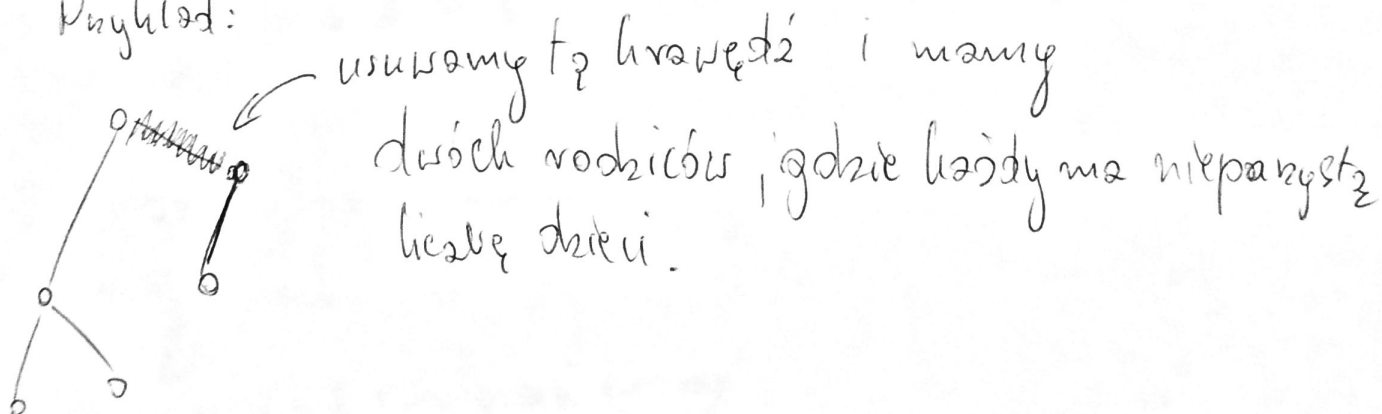 Przykład:
usuwamy tą krawędź i mamy
dwóch rodziców, gdzie każdy ma nieparzystą
liczbę dzieci.